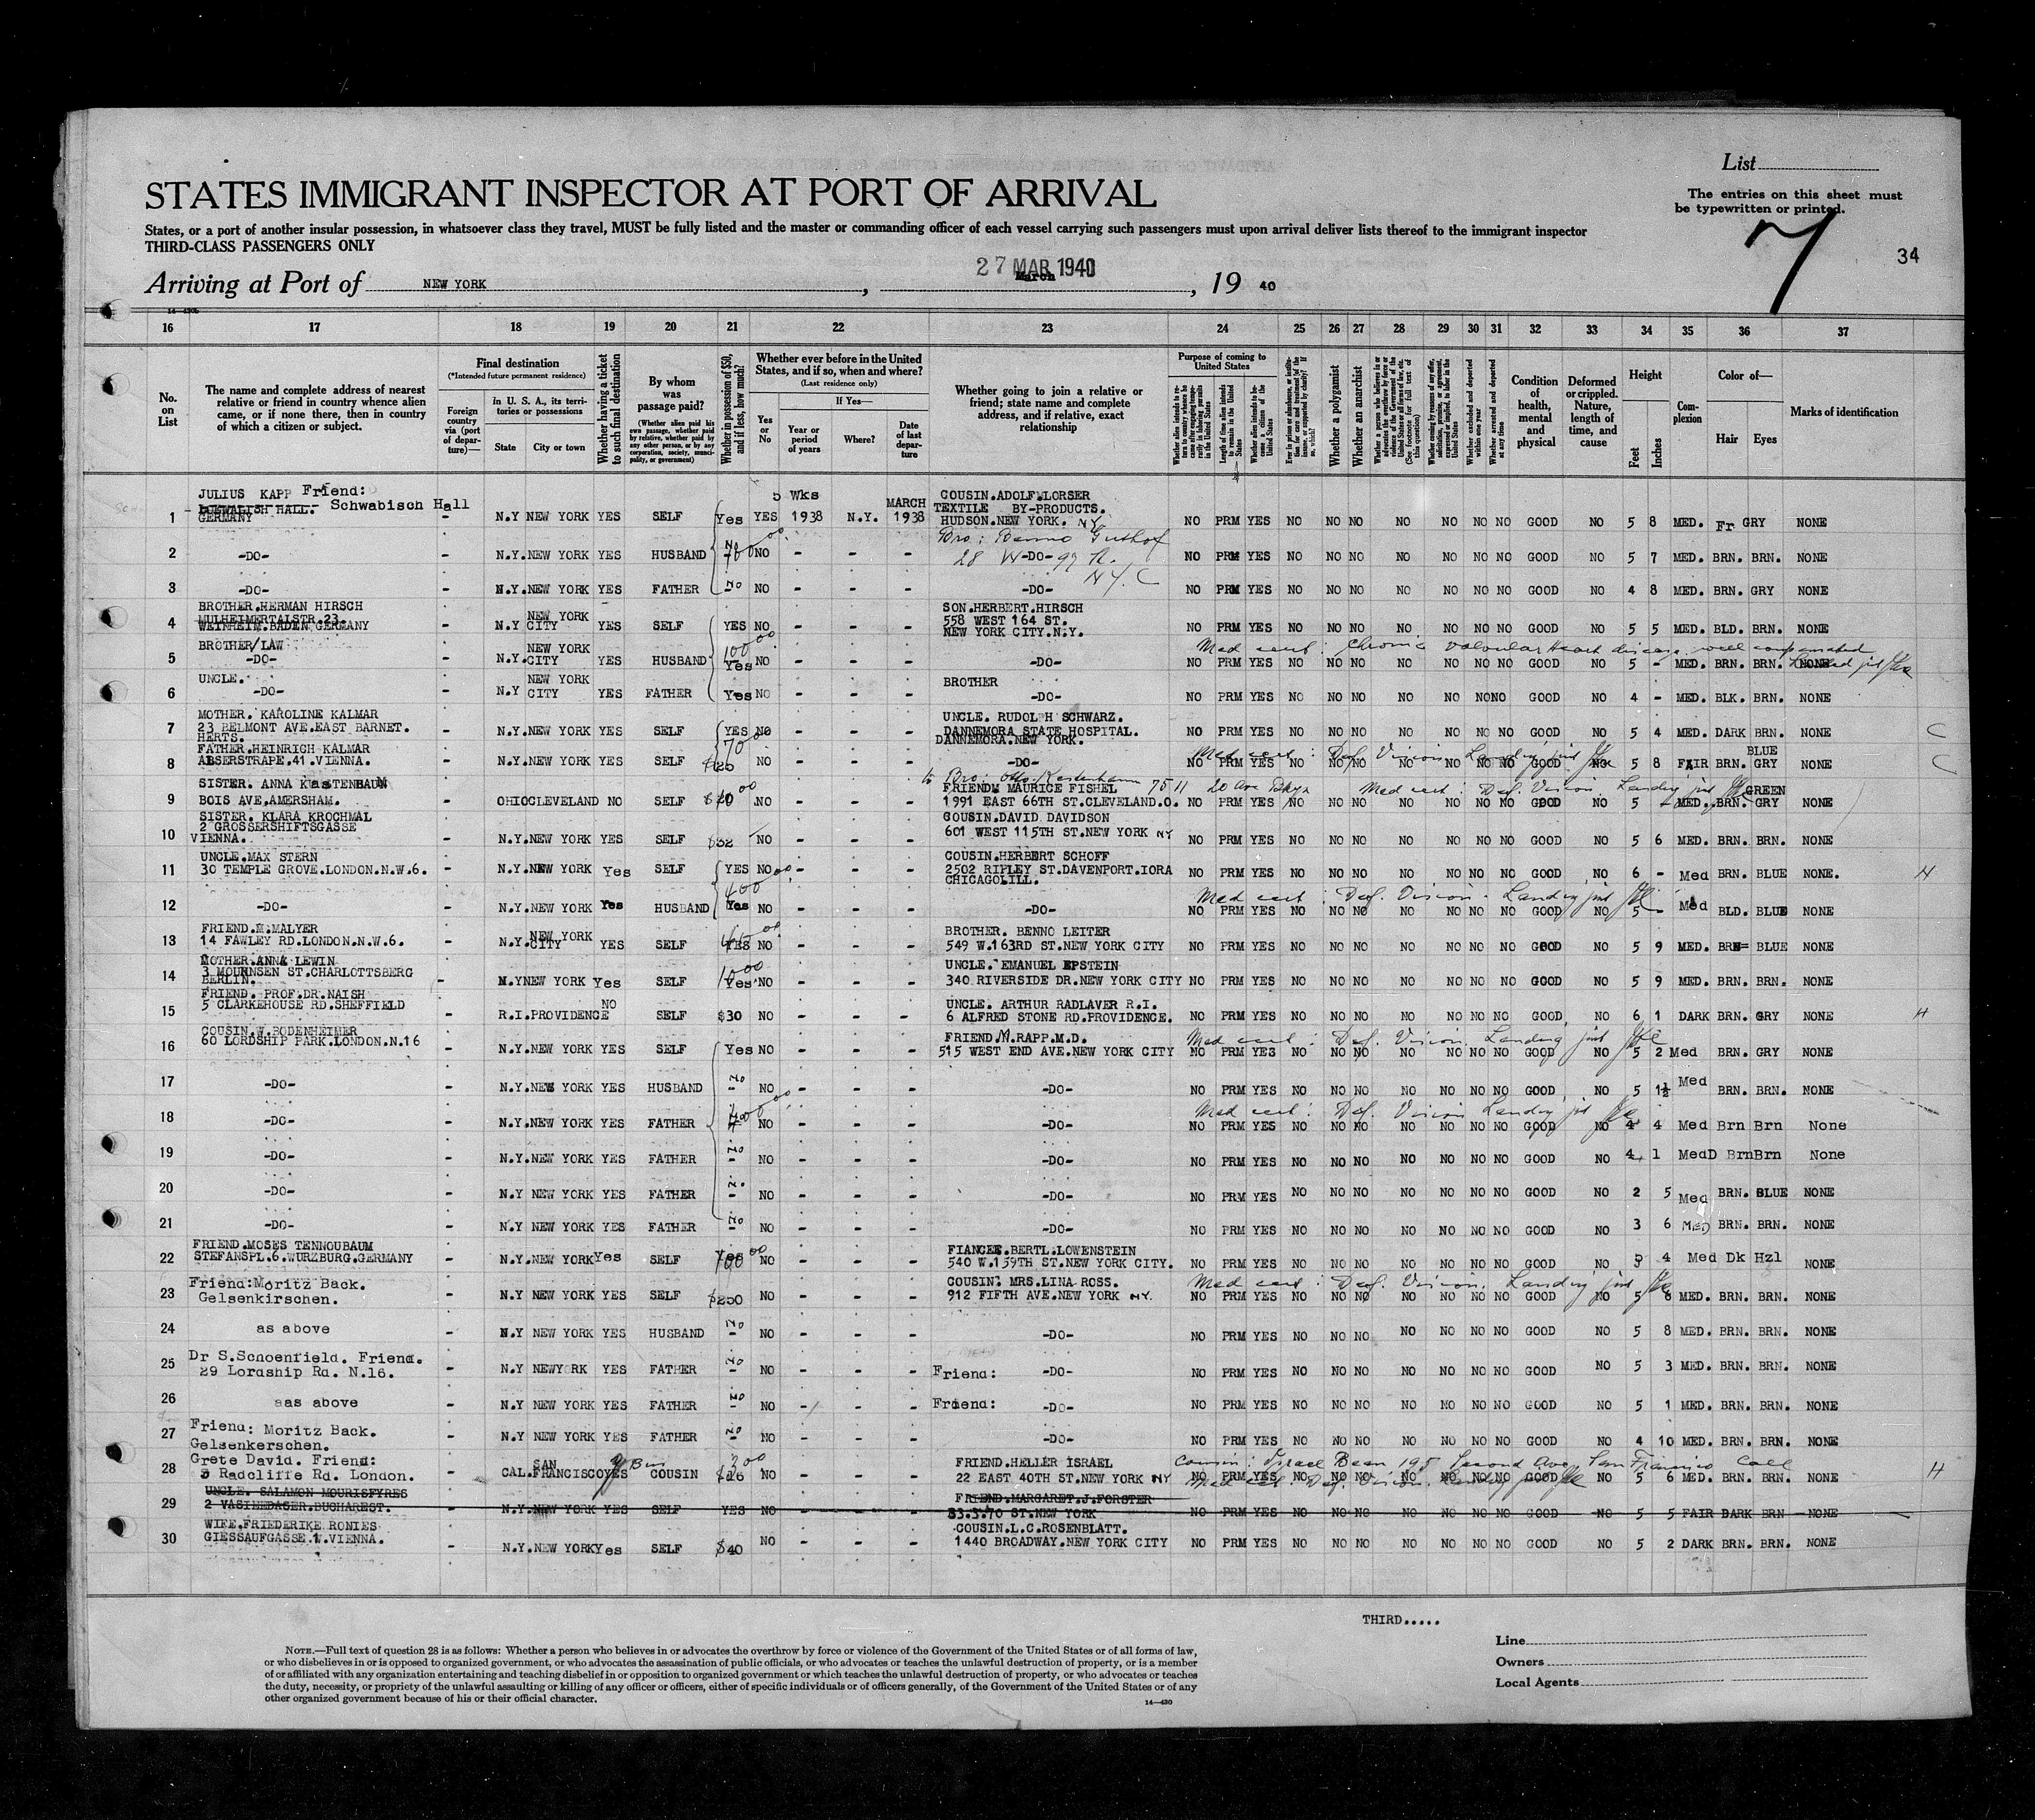 List
STATES IMMIGRANT INSPECTOR AT PORT OF ARRIVAL
The entries on this sheet must
be typewritten or printed.
States, or a port of another insular possession, in whatsoever class they travel, MUST be fully listed and the master or commanding officer of each vessel carrying such passengers must upon arrival deliver lists thereof to the immigrant inspector
THIRD-CLASS PASSENGERS ONLY
7
34
27 MAR 1940
Arriving at Port of NEW YORK, March, 19 40
16 17 18 19 20 21 22 23 24 25 26 27 28 29 30 31 32 33 34 35 36 37
No. on List
The name and complete address of nearest relative or friend in country whence alien came, or if none there, then in country of which a citizen or subject.
Final destination
(*Intended future permanent residence)
Foreign country via (port of departure)—
in U. S. A., its territories or possessions
State City or town
Whether having a ticket to such final destination
By whom was passage paid?
(Whether alien paid his own passage, whether paid by relative, whether paid by any other person, or by any corporation, society, municipality, or government)
Whether in possession of $50, and if less, how much?
Whether ever before in the United States, and if so, when and where?
(Last residence only)
Yes or No
If Yes—
Year or period of years
Where?
Date of last departure
Whether going to join a relative or friend; state name and complete address, and if relative, exact relationship
Purpose of coming to United States
Length of time alien intends to remain in the United States
Whether alien intends to become a citizen of the United States
Whether a polygamist
Whether an anarchist
(See footnote for full text of this question)
Whether excluded and deported within one year
Whether arrested and deported at any time
Condition of health, mental and physical
Deformed or crippled. Nature, length of time, and cause
Height
Feet Inches
Complexion
Color of—
Hair Eyes
Marks of identification
1 JULIUS KAPP Friend: Schwabisch Hall GERMANY - N.Y NEW YORK YES SELF Yes YES 5 Wks 1938 N.Y. MARCH 1938 COUSIN.ADOLF.LORSER TEXTILE BY-PRODUCTS. HUDSON.NEW YORK. NY NO PRM YES NO NO NO NO NO NO NO GOOD NO 5 8 MED. Fr GRY NONE
2 -DO- - N.Y.NEW YORK YES HUSBAND No NO - - - Bro: Benno Guthof 28 W -DO- 97 St. N.Y.C NO PRM YES NO NO NO NO NO NO NO GOOD NO 5 7 MED. BRN. BRN. NONE
3 -DO- - N.Y.NEW YORK YES FATHER No NO - - - -DO- NO PRM YES NO NO NO NO NO NO NO GOOD NO 4 8 MED. BRN. GRY NONE
4 BROTHER.HERMAN HIRSCH MULHEIMERTALSTR.23. WEINHEIM.BADEN GERMANY - N.Y NEW YORK CITY YES SELF YES NO - - - SON.HERBERT.HIRSCH 558 WEST 164 ST. NEW YORK CITY.N.Y. NO PRM YES NO NO NO NO NO NO NO GOOD NO 5 5 MED. BLD. BRN. NONE
5 BROTHER/LAW -DO- - N.Y. NEW YORK CITY YES HUSBAND 100 Yes NO - - - -DO- Med cert: Chronic valvular heart disease well compensated NO PRM YES NO NO NO NO NO NO NO GOOD NO 5 - MED. BRN. BRN. NONE
6 UNCLE. -DO- - N.Y NEW YORK CITY YES FATHER Yes NO - - - BROTHER -DO- NO PRM YES NO NO NO NO NO NO NO GOOD NO 4 - MED. BLK. BRN. NONE
7 MOTHER. KAROLINE KALMAR 23 BELMONT AVE.EAST BARNET. HERTS. - N.Y.NEW YORK YES SELF YES NO - - - UNCLE. RUDOLPH SCHWARZ. DANNEMORA STATE HOSPITAL. DANNEMORA.NEW YORK. NO PRM YES NO NO NO NO NO NO NO GOOD NO 5 4 MED. DARK BRN. NONE C
8 FATHER.HEINRICH KALMAR ABSERSTRAPE.41.VIENNA. - N.Y.NEW YORK YES SELF 70 NO - - - -DO- Med cert: Def. Vision Landing just NO PRM YES NO NO NO NO NO NO NO GOOD NO 5 8 FAIR BRN. BLUE GRY NONE C
9 SISTER. ANNA KastENBAUM BOIS AVE.AMERSHAM. - OHIO CLEVELAND NO SELF NO - - - to Bro: Otto Kestenbaum 7511 20 Ave Bklyn FRIEND MAURICE FISHEL 1991 EAST 66TH ST.CLEVELAND.O. Med cert: Def. Vision. Landing just NO PRM YES NO NO NO NO NO NO NO GOOD NO 5 - MED. BRN. GREEN GRY NONE
10 SISTER. KLARA KROCHMAL 2 GROSSERSHIFTSGASSE VIENNA. - N.Y.NEW YORK YES SELF $32 NO - - - COUSIN.DAVID DAVIDSON 601 WEST 115TH ST.NEW YORK NY NO PRM YES NO NO NO NO NO NO NO GOOD NO 5 6 MED. BRN. BRN. NONE
11 UNCLE.MAX STERN 30 TEMPLE GROVE.LONDON.N.W.6. - N.Y.NEW YORK Yes SELF YES NO - - - COUSIN.HERBERT SCHOFF 2502 RIPLEY ST.DAVENPORT.IORA CHICAGO.ILL. NO PRM YES NO NO NO NO NO NO NO GOOD NO 6 - Med BRN. BLUE NONE. H
12 -DO- - N.Y.NEW YORK Yes HUSBAND 400 Yes NO - - - -DO- Med cert: Def. Vision. Landing just NO PRM YES NO NO NO NO NO NO NO GOOD NO 5 - Med BLD. BLUE NONE
13 FRIEND.M.MALYER 14 FAWLEY RD.LONDON.N.W.6. - N.Y. NEW YORK CITY YES SELF YES NO - - - BROTHER. BENNO LEITER 549 W.163RD ST.NEW YORK CITY NO PRM YES NO NO NO NO NO NO NO GOOD NO 5 9 MED. BRN= BLUE NONE
14 MOTHER.ANNA LEWIN 3 MOURNSEN ST.CHARLOTTSBERG BERLIN. - N.Y NEW YORK Yes SELF Yes NO - - - UNCLE. EMANUEL EPSTEIN 340 RIVERSIDE DR.NEW YORK CITY NO PRM YES NO NO NO NO NO NO NO GOOD NO 5 9 MED. BRN. BRN. NONE
15 FRIEND. PROF.DR.NAISH 5 CLARKEHOUSE RD.SHEFFIELD - R.I.PROVIDENCE NO SELF $30 NO - - - UNCLE. ARTHUR RADLAVER R.I. 6 ALFRED STONE RD.PROVIDENCE. NO PRM YES NO NO NO NO NO NO NO GOOD NO 6 1 DARK BRN. GRY NONE H
16 COUSIN.W.BODENHEIMER 60 LORDSHIP PARK.LONDON.N.16 - N.Y.NEW YORK YES SELF Yes NO - - - FRIEND.M.RAPP.M.D. 515 WEST END AVE.NEW YORK CITY Med cert: Def. Vision. Landing just NO PRM YES NO NO NO NO NO NO NO GOOD NO 5 2 Med BRN. GRY NONE
17 -DO- - N.Y.NEW YORK YES HUSBAND No NO - - - -DO- NO PRM YES NO NO NO NO NO NO NO GOOD NO 5 1½ Med BRN. BRN. NONE
18 -DO- - N.Y.NEW YORK YES FATHER NO - - - -DO- Med cert: Def. Vision Landing just NO PRM YES NO NO NO NO NO NO NO GOOD NO 4 4 Med Brn Brn None
19 -DO- - N.Y.NEW YORK YES FATHER No NO - - - -DO- NO PRM YES NO NO NO NO NO NO NO GOOD NO 4 1 MedD Brn Brn None
20 -DO- - N.Y NEW YORK YES FATHER No NO - - - -DO- NO PRM YES NO NO NO NO NO NO NO GOOD NO 2 5 Med BRN. BLUE NONE
21 -DO- - N.Y NEW YORK YES FATHER No NO - - - -DO- NO PRM YES NO NO NO NO NO NO NO GOOD NO 3 6 MED BRN. BRN. NONE
22 FRIEND.MOSES TENNOUBAUM STEFANSPL.6.WURZBURG.GERMANY - N.Y.NEW YORK Yes SELF Yes 100 NO - - - FIANCEE.BERTL.LOWENSTEIN 540 W.159TH ST.NEW YORK CITY. NO PRM YES NO NO NO NO NO NO NO GOOD NO 5 4 Med Dk Hzl NONE
23 Friend:Moritz Back. Gelsenkirschen. - N.Y NEW YORK YES SELF $250 NO - - - COUSIN. MRS.LINA ROSS. 912 FIFTH AVE.NEW YORK NY. Med cert: Def. Vision. Landing just NO PRM YES NO NO NO NO NO NO NO GOOD NO 5 6 MED. BRN. BRN. NONE
24 as above - N.Y NEW YORK YES HUSBAND No NO - - - -DO- NO PRM YES NO NO NO NO NO NO NO GOOD NO 5 8 MED. BRN. BRN. NONE
25 Dr S.Schoenfield. Friend. 29 Lordship Rd. N.16. - N.Y NEWYORK YES FATHER No NO - - - Friend: -DO- NO PRM YES NO NO NO NO NO NO NO GOOD NO 5 3 MED. BRN. BRN. NONE
26 aas above - N.Y NEW YORK YES FATHER No NO - - - Friend: -DO- NO PRM YES NO NO NO NO NO NO NO GOOD NO 5 1 MED. BRN. BRN. NONE
27 Friend: Moritz Back. Gelsenkerschen. - N.Y NEW YORK YES FATHER No NO - - - -DO- NO PRM YES NO NO NO NO NO NO NO GOOD NO 4 10 MED. BRN. BRN. NONE
28 Grete David. Friend: 3 Radcliffe Rd. London. - CAL. SAN FRANCISCO YES COUSIN NO - - - FRIEND.HELLER ISRAEL 22 EAST 40TH ST.NEW YORK NY Cousin: Israel Bean 195 Second Ave, San Francisco Cal NO PRM YES NO NO NO NO NO NO NO GOOD NO 5 6 MED. BRN. BRN. NONE H
Med cert: Def. Vision. Landing just
29 UNCLE. SALAMON MOURISFYRES 2 VASIHEDASER.BUCHAREST. - N.Y.NEW YORK YES SELF YES NO - - - FRIEND.MARGARET.J.FORSTER 33.3.70 ST.NEW YORK NO PRM YES NO NO NO NO NO NO NO GOOD NO 5 5 FAIR DARK BRN NONE
30 WIFE.FRIEDERIKE RONIES GIESSAUFGASSE.1.VIENNA. - N.Y.NEW YORK Yes SELF $40 NO - - - COUSIN.L.C.ROSENBLATT. 1440 BROADWAY.NEW YORK CITY NO PRM YES NO NO NO NO NO NO NO GOOD NO 5 2 DARK BRN. BRN. NONE
THIRD.....
NOTE.—Full text of question 28 is as follows: Whether a person who believes in or advocates the overthrow by force or violence of the Government of the United States or of all forms of law,
or who disbelieves in or is opposed to organized government, or who advocates the assassination of public officials, or who advocates or teaches the unlawful destruction of property, or is a member
of or affiliated with any organization entertaining and teaching disbelief in or opposition to organized government or which teaches the unlawful destruction of property, or who advocates or teaches
the duty, necessity, or propriety of the unlawful assaulting or killing of any officer or officers, either of specific individuals or of officers generally, of the Government of the United States or of any
other organized government because of his or their official character.
14—430
Line
Owners
Local Agents